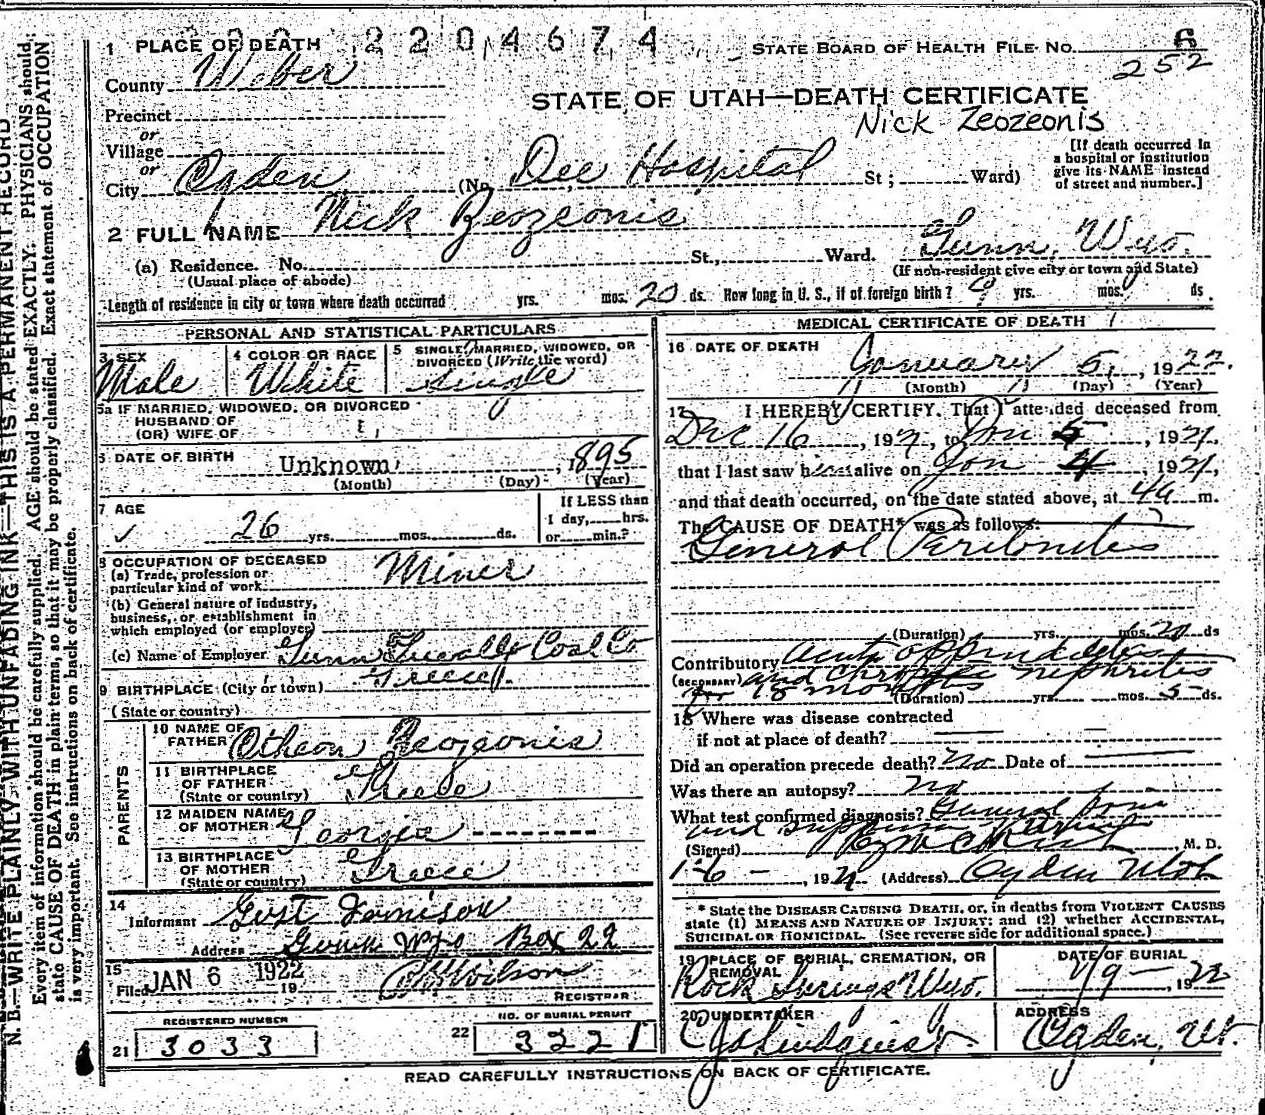 2204674
STATE BOARD OF HEALTH FILE NO. 6
252
1 PLACE OF DEATH
County Weber
STATE OF UTAH—DEATH CERTIFICATE
Nick Zeozeonis
Precinct
or
Village
or
City Ogden (No. Dee Hospital St; Ward)
[If death occurred in a hospital or institution give its NAME instead of street and number.]
2 FULL NAME Nick Zeozeonis
(a) Residence. No. St., Ward. Gunn, Wyo.
(Usual place of abode) (If non-resident give city or town and State)
Length of residence in city or town where death occurred yrs. mos. 20 ds. How long in U. S., if of foreign birth? 9 yrs. mos. ds.
PERSONAL AND STATISTICAL PARTICULARS
3 SEX Male
4 COLOR OR RACE White
5 SINGLE, MARRIED, WIDOWED, OR DIVORCED (Write the word) Single
5a IF MARRIED, WIDOWED, OR DIVORCED
HUSBAND OF
(OR) WIFE OF
6 DATE OF BIRTH Unknown, 1895
(Month) (Day) (Year)
7 AGE 26 yrs. mos. ds.
If LESS than 1 day, hrs. or min.?
8 OCCUPATION OF DECEASED
(a) Trade, profession or particular kind of work Miner
(b) General nature of industry, business, or establishment in which employed (or employer)
(c) Name of Employer Gunn Coal Co
9 BIRTHPLACE (City or town) Greece
(State or country)
PARENTS
10 NAME OF FATHER Zeozeonis
11 BIRTHPLACE OF FATHER (State or country) Greece
12 MAIDEN NAME OF MOTHER Georgia
13 BIRTHPLACE OF MOTHER (State or country) Greece
14 Informant Gust
Address Gunn Wyo Box 22
15 Filed JAN 6 1922 19 Wilson
REGISTRAR
REGISTERED NUMBER
21 3033
NO. OF BURIAL PERMIT
22 3221
MEDICAL CERTIFICATE OF DEATH
16 DATE OF DEATH
January 5, 1922.
(Month) (Day) (Year)
17 I HEREBY CERTIFY, That I attended deceased from
Dec 16, 192, to Jan 5, 192,
that I last saw him alive on Jan 4, 192,
and that death occurred, on the date stated above, at 4a m.
The CAUSE OF DEATH* was as follows:
General Peritonitis
(Duration) yrs. mos. 20 ds
Contributory acute appendicitis
(SECONDARY) and chronic nephritis
for 18 months (Duration) yrs mos. 5 ds.
18 Where was disease contracted
if not at place of death?
Did an operation precede death? no Date of
Was there an autopsy? no
What test confirmed diagnosis? General
and
(Signed) , M. D.
1-6-, 192 (Address) Ogden Utah
* State the DISEASE CAUSING DEATH, or, in deaths from VIOLENT CAUSES state (1) MEANS AND NATURE OF INJURY; and (2) whether ACCIDENTAL, SUICIDAL OR HOMICIDAL. (See reverse side for additional space.)
19 PLACE OF BURIAL, CREMATION, OR REMOVAL
Rock Springs Wyo.
DATE OF BURIAL
1/9— 1922
20 UNDERTAKER
Lindquist
ADDRESS
Ogden, Ut.
READ CAREFULLY INSTRUCTIONS ON BACK OF CERTIFICATE.
N. B.—WRITE PLAINLY WITH UNFADING INK—THIS IS A PERMANENT RECORD
Every item of information should be carefully supplied. AGE should be stated EXACTLY. PHYSICIANS should
state CAUSE OF DEATH in plain terms, so that it may be properly classified. Exact statement of OCCUPATION
is very important. See instructions on back of certificate.